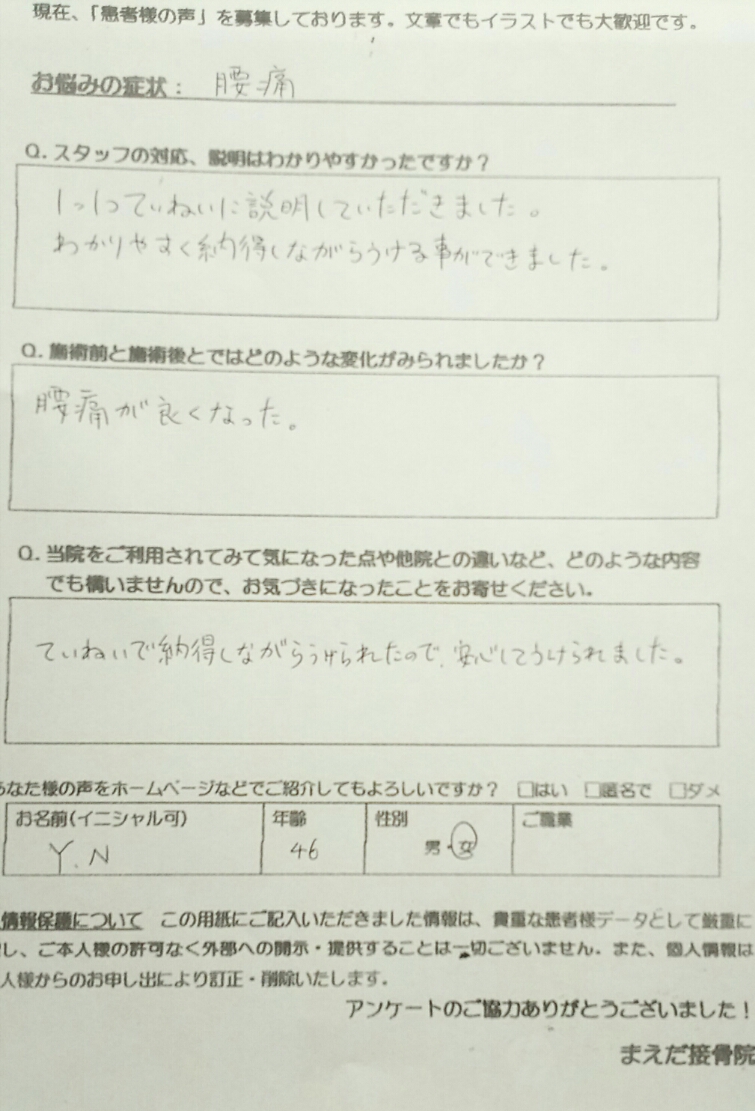 現在、「患者様の声」を募集しております。文章でもイラストでも大歓迎です。
お悩みの症状： 腰痛
Q. スタッフの対応、説明はわかりやすかったですか？
1つ1つていねいに説明していただきました。
わかりやすく納得しながらうける事ができました。
Q. 施術前と施術後とではどのような変化がみられましたか？
腰痛が良くなった。
Q. 当院をご利用されてみて気になった点や他院との違いなど、どのような内容
でも構いませんので、お気づきになったことをお寄せください。
ていねいで納得しながらうけられたので、安心してうけられました。
あなた様の声をホームページなどでご紹介してもよろしいですか？ □はい □匿名で □ダメ
お名前(イニシャル可) 年齢 性別 ご職業
Y.N 46 男・女
情報保護について この用紙にご記入いただきました情報は、貴重な患者様データとして厳重に
し、ご本人様の許可なく外部への開示・提供することは一切ございません。また、個人情報は
人様からのお申し出により訂正・削除いたします。
アンケートのご協力ありがとうございました！
まえだ接骨院